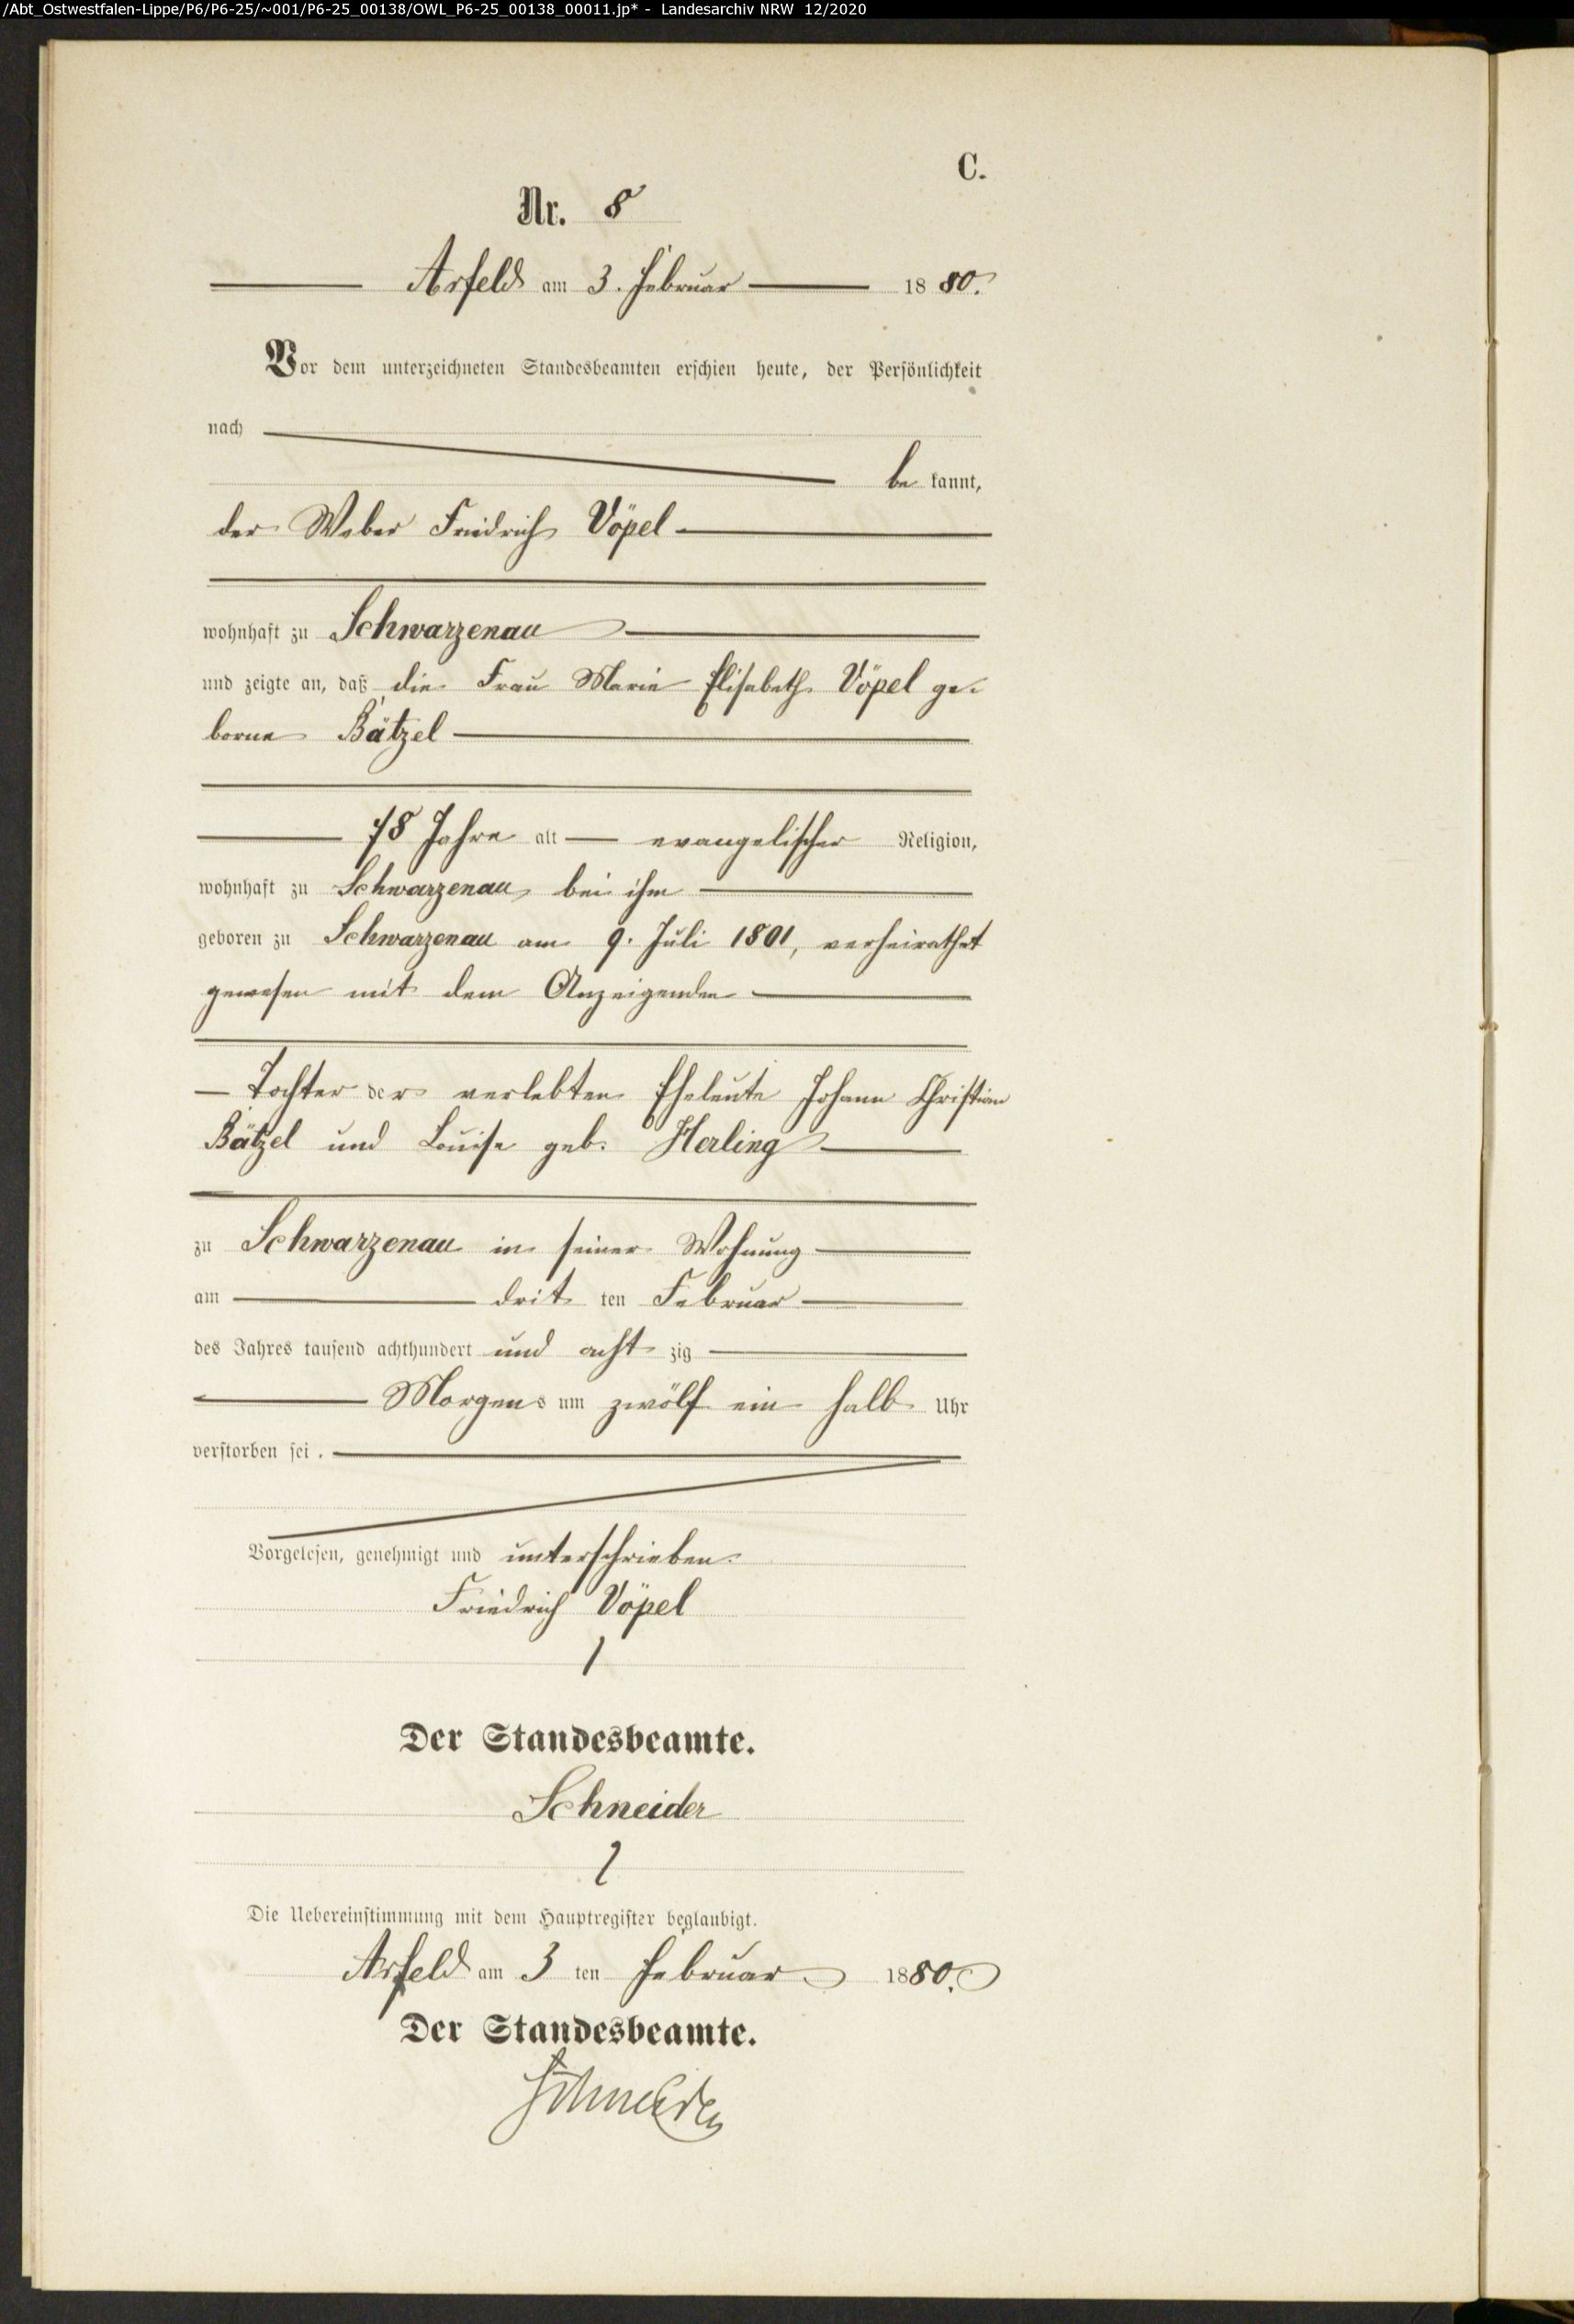 /Abt_Ostwestfalen-Lippe/P6/P6-25/~001/P6-25_00138/OWL_P6-25_00138_00011.jp* - Landesarchiv NRW 12/2020
C.
Nr. 8
Arfeld am 3. Februar 1880.
Vor dem unterzeichneten Standesbeamten erschien heute, der Persönlichkeit
nach
bekannt,
der Weber Friedrich Vöpel
wohnhaft zu Schwarzenau
und zeigte an, daß die Frau Marie Elisabeth Vöpel ge-
borne Bätzel
78 Jahre alt evangelischer Religion,
wohnhaft zu Schwarzenau bei ihm
geboren zu Schwarzenau am 9. Juli 1801, verheirathet
gewesen mit dem Anzeigenden
Tochter der verlebten Eheleute Johann Christian
Bätzel und Louise geb. Herling
zu Schwarzenau in seiner Wohnung
am dritten Februar
des Jahres tausend achthundert und achtzig
Morgens um zwölf ein halb Uhr
verstorben sei.
Vorgelesen, genehmigt und unterschrieben.
Friedrich Vöpel
Der Standesbeamte.
Schneider
Die Uebereinstimmung mit dem Hauptregister beglaubigt.
Arfeld am 3 ten Februar 1880.
Der Standesbeamte.
Schneider